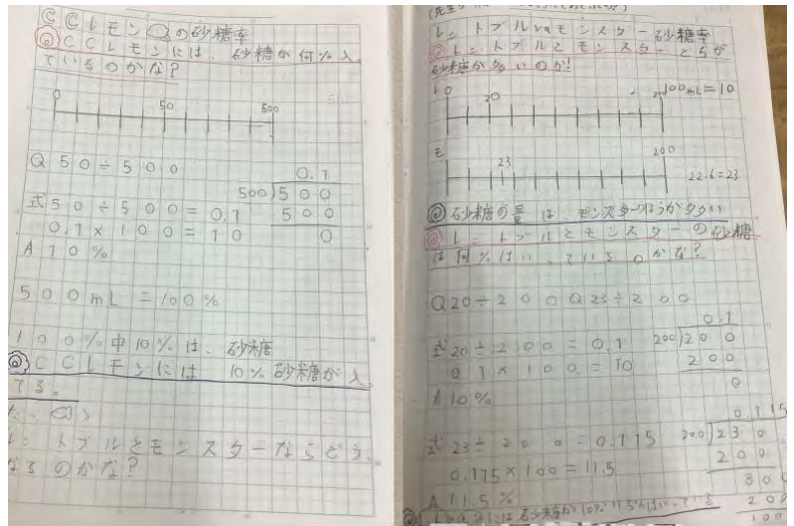 CCレモンの砂糖率
◎CCレモンには、砂糖が何%入っ
ているのかな？
0 50 500
Q50÷500
式50÷500=0.1
0.1×100=10
A10%
0.1
500)500
500
0
500mL=100%
100%中10%は、砂糖
◎CCレモンには10%砂糖が入っ
てる。
トブルとモンスターならどう
なるのかな？
トブルvsモンスター砂糖率
トブルとモンスターどちが
砂糖が多いのか!
0 20
100mL=10
モ
23 200
22.6=23
◎砂糖の量は、モンスターのほうが多い
トブルとモンスターの砂糖
は何%はいっているのかな？
Q20÷200Q23÷200
式20÷200=0.1
0.1×100=10
A10%
0.1
200)200
200
0
式23÷200=0.115
0.115×100=11.5
A11.5%
0.115
200)230
200
300
200
100